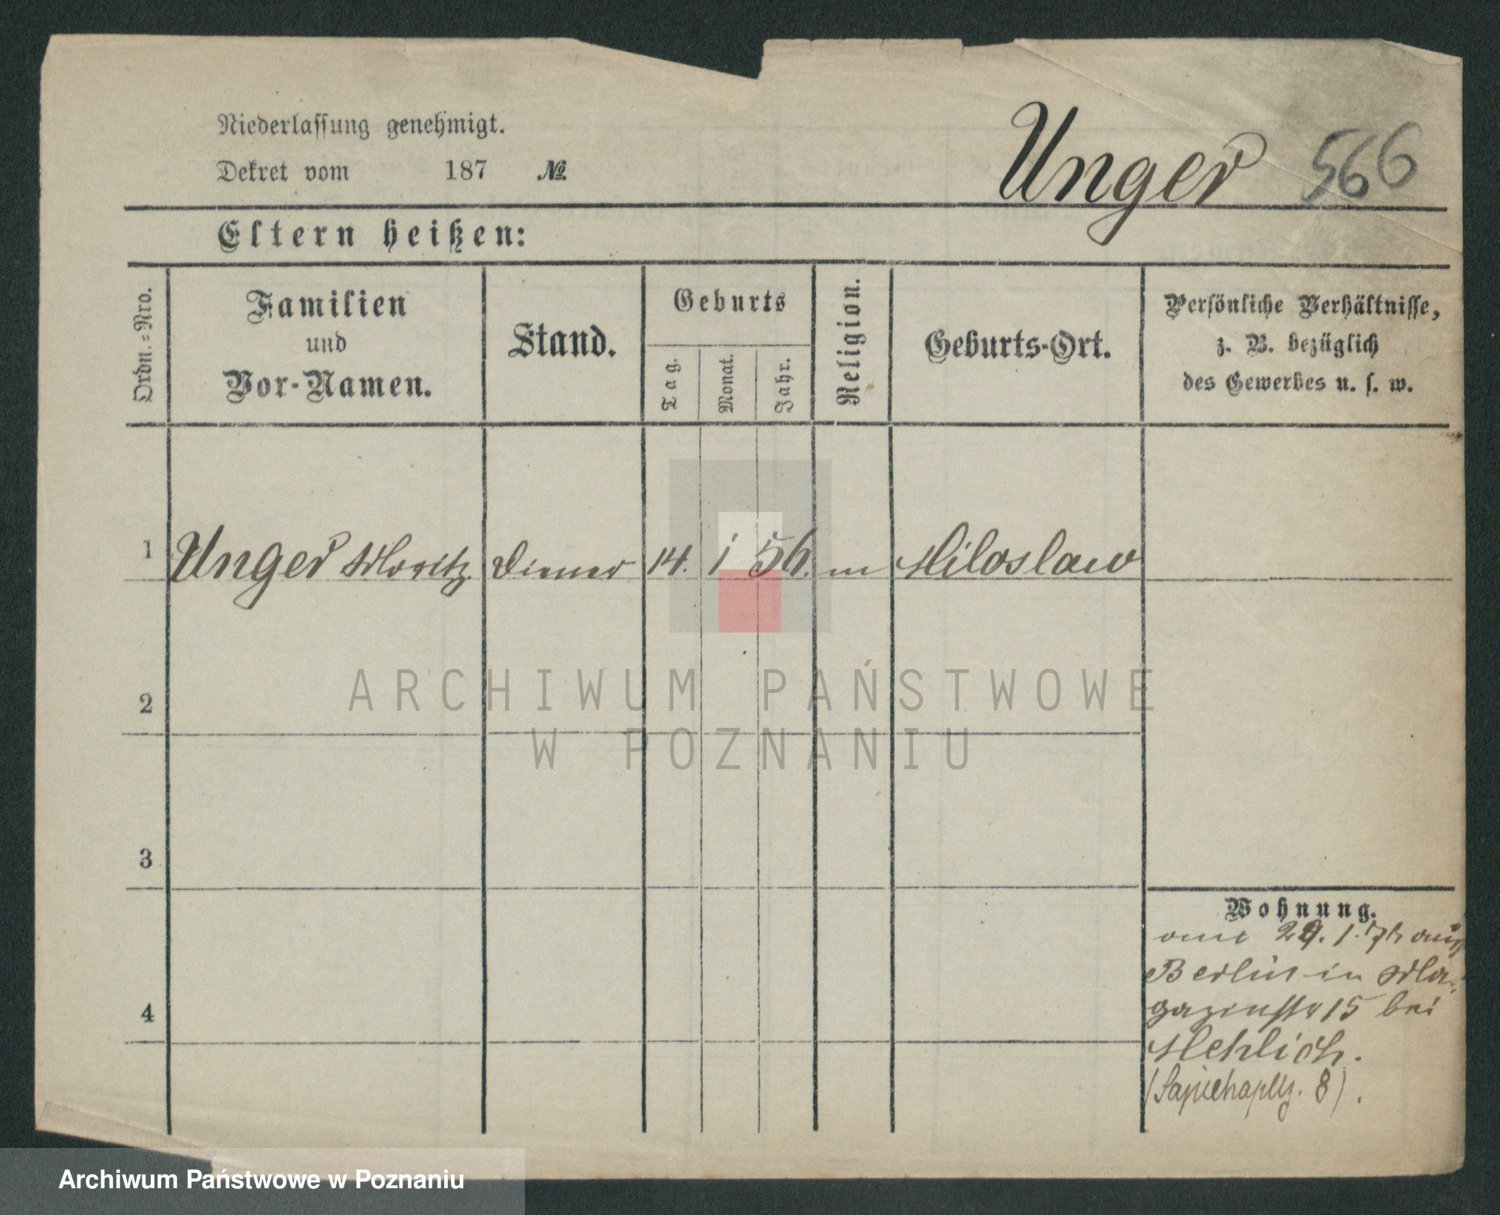 Niederlassung genehmigt.
Dekret vom 187 №
Unger 566
Eltern heißen:
Ordn.=Nro.
Familien
und
Vor-Namen.
Stand.
Geburts
Tag.
Monat.
Jahr.
Religion.
Geburts-Ort.
Persönliche Verhältnisse,
z. B. bezüglich
des Gewerbes u. s. w.
1 Unger Moritz Diener 14. 1 56. m Miloslaw
2
3
4
Wohnung.
29. 1. 76 aus
Berlin in Ma-
gazinstr 15 bei
Mehlich.
(Sapiehapltz. 8).
ARCHIWUM PAŃSTWOWE
W POZNANIU
Archiwum Państwowe w Poznaniu